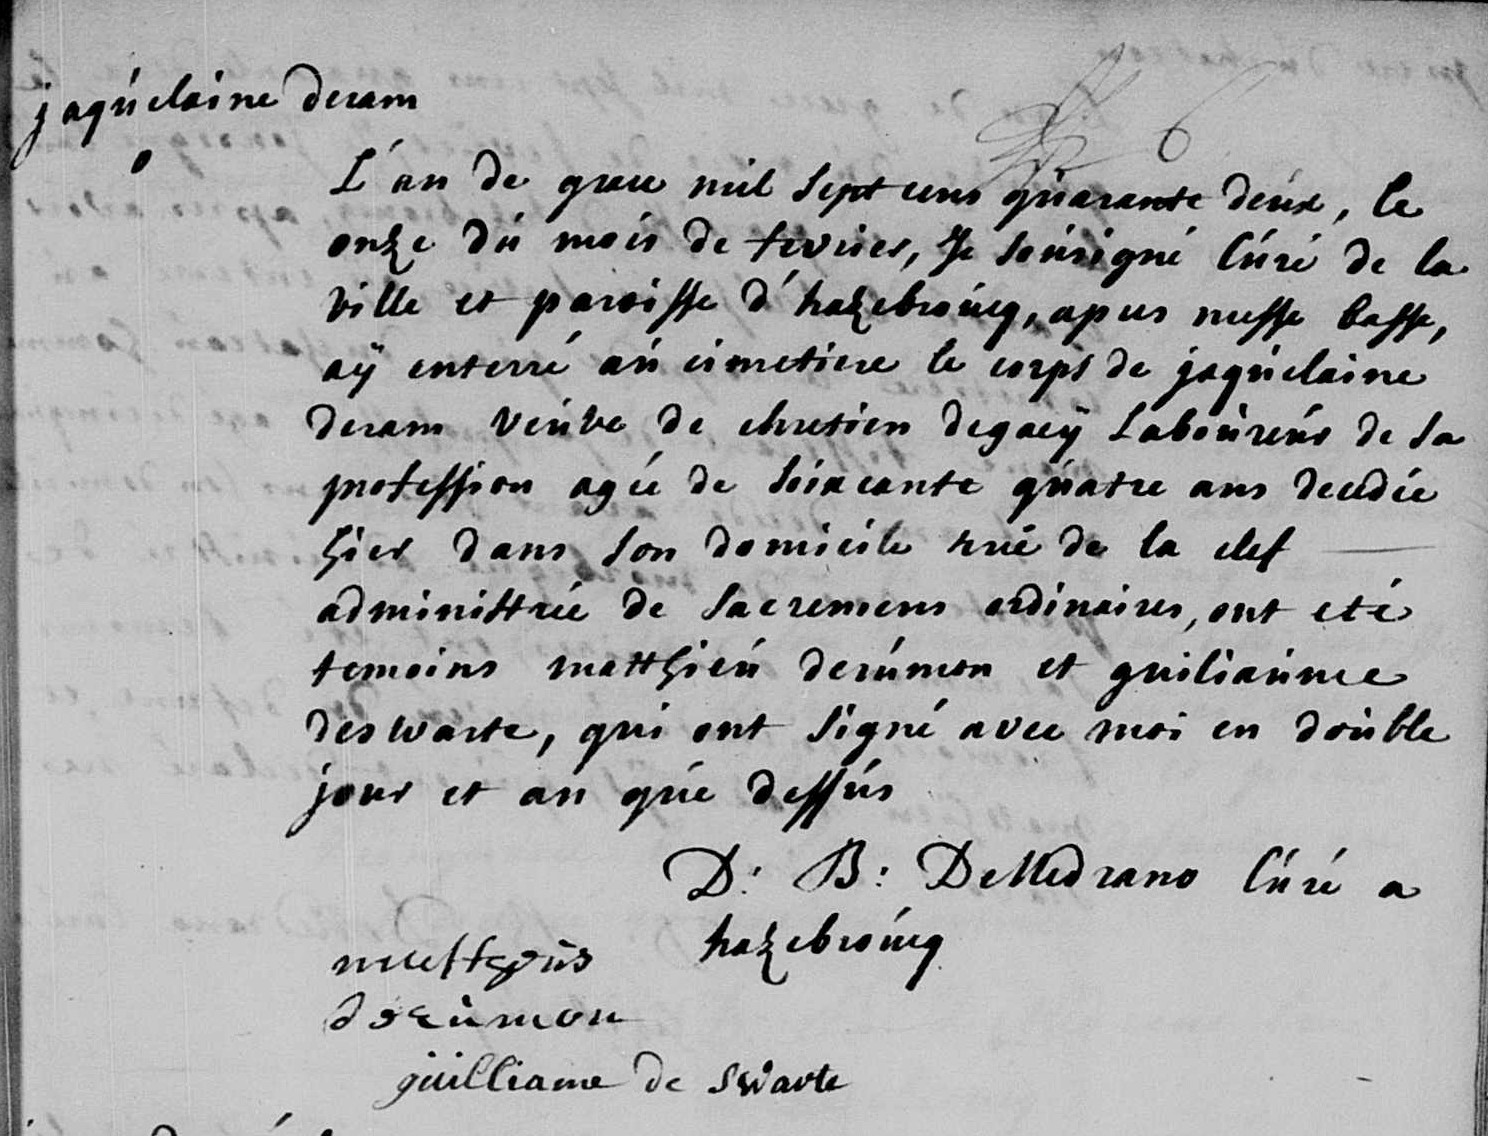 jaquelaine deram
L'an de grace mil sept cens quarante deux, le
onze du mois de fevrier, Je sousigné Curé de la
ville et paroisse d'hazebroucq, apres messe basse,
aÿ enterré au cimetiere le corps de jaquelaine
deram veuve de chretien degaeÿ Laboureur de sa
profession agée de soixante quatre ans decedée
hier dans son domicile rue de la clef
administrée de sacremens ordinaires, ont eté
temoins matthieu derumon et guiliaume
deswarte, qui ont signé avec moi en double
jour et an que dessus
D: B: DeMedrano Curé a
hazebroucq
derumon
guilliame de swarte